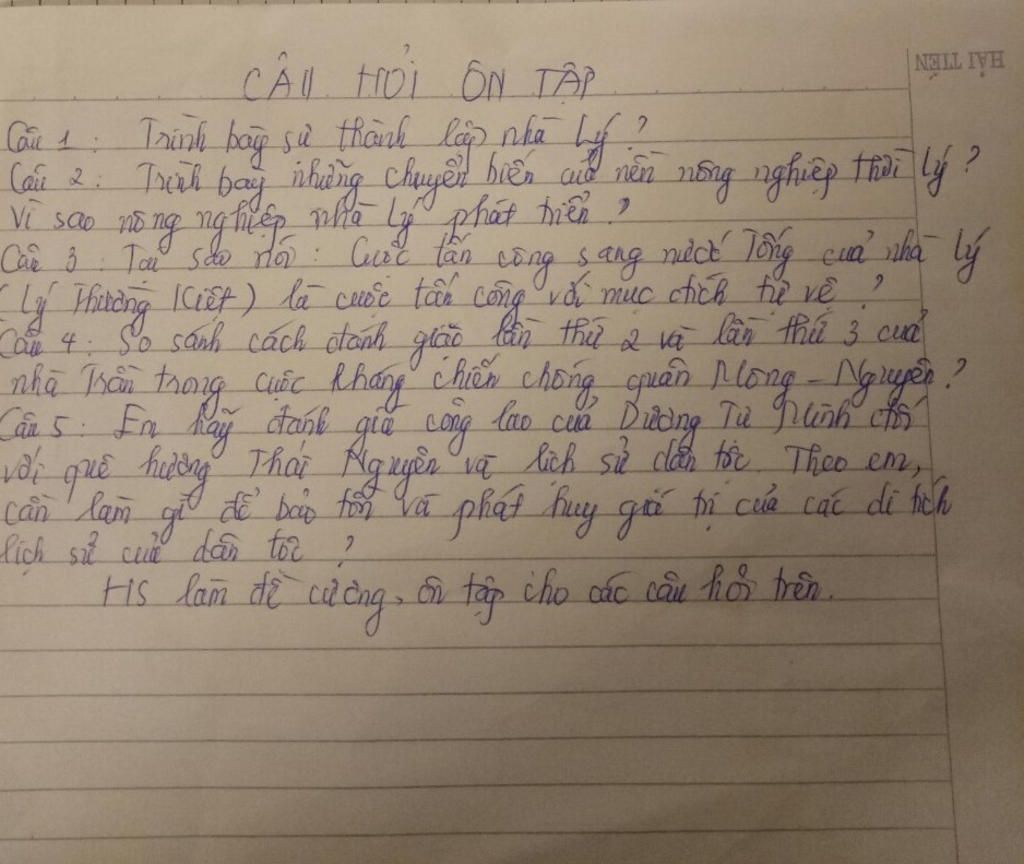 HẢI TIẾN
CÂU HỎI ÔN TẬP
Câu 1 : Trình bày sự thành lập nhà Lý ?
Câu 2 : Trình bày những chuyển biến của nền nông nghiệp thời Lý ?
Vì sao nông nghiệp nhà Lý phát triển ?
Câu 3 : Tại sao nói : Cuộc tấn công sang nước Tống của nhà Lý
( Lý Thường Kiệt ) là cuộc tấn công với mục đích tự vệ ?
Câu 4 : So sánh cách đánh giặc lần thứ 2 và lần thứ 3 của
nhà Trần trong cuộc kháng chiến chống quân Mông - Nguyên ?
Câu 5 : Em hãy đánh giá công lao của Dương Tự Minh đối
với quê hương Thái Nguyên và lịch sử dân tộc. Theo em,
cần làm gì để bảo tồn và phát huy giá trị của các di tích
lịch sử của dân tộc ?
HS làm đề cương, ôn tập cho các câu hỏi trên.